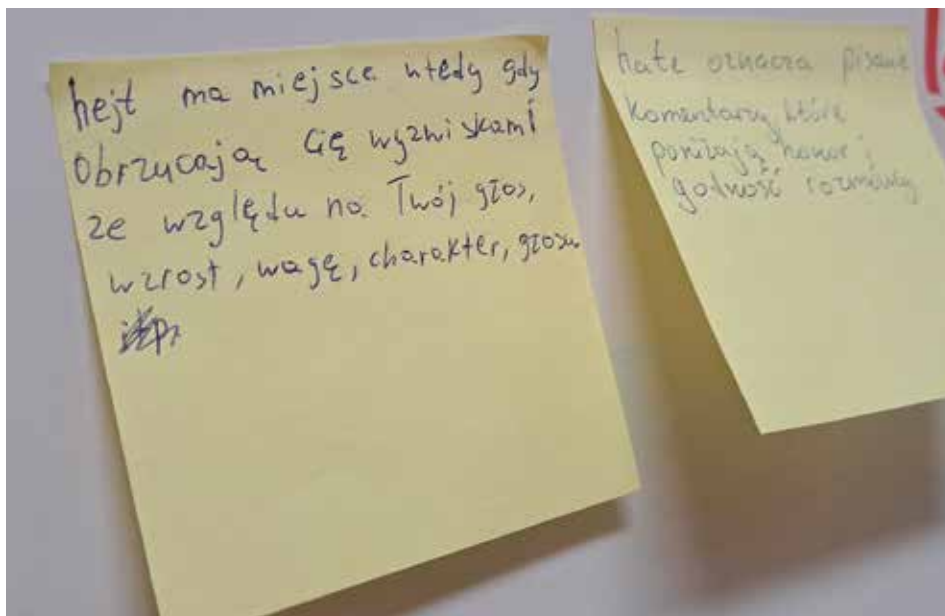 hejt ma miejsce wtedy gdy
obrzucają Cię wyzwiskami
ze względu na Twój głos,
wzrost, wagę, charakter, głosu
hate oznacza pisanie
komentarzy które
poniżają honor i
godność rozmówcy